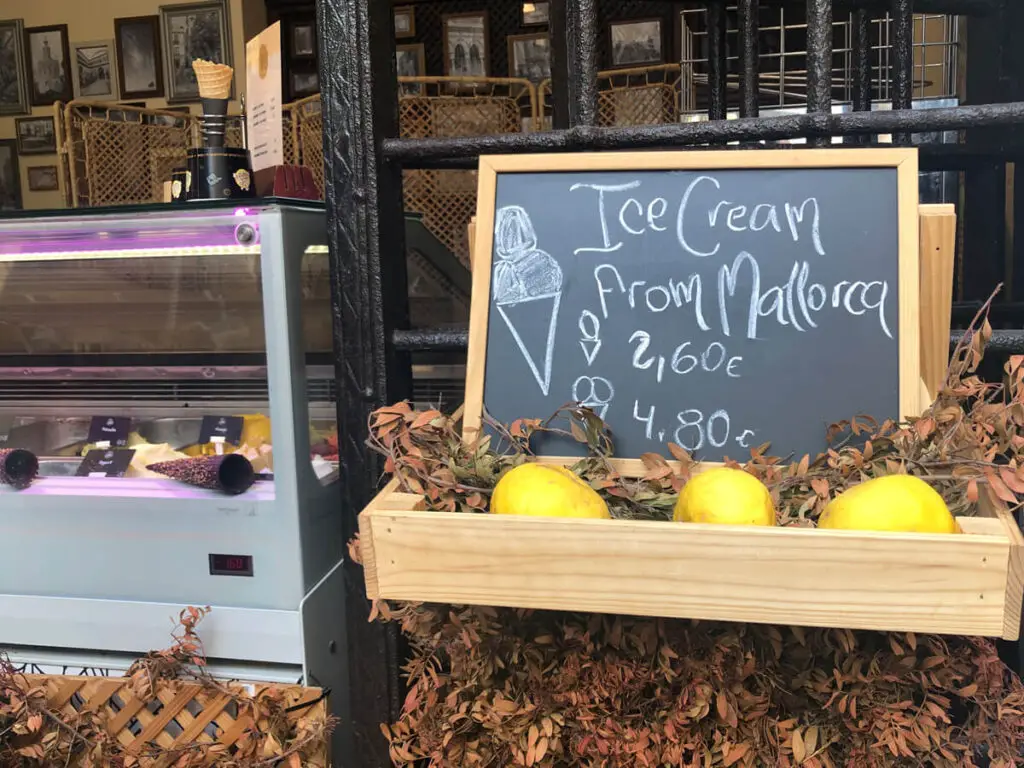 Ice Cream
From Mallorca
2,60€
4,80€